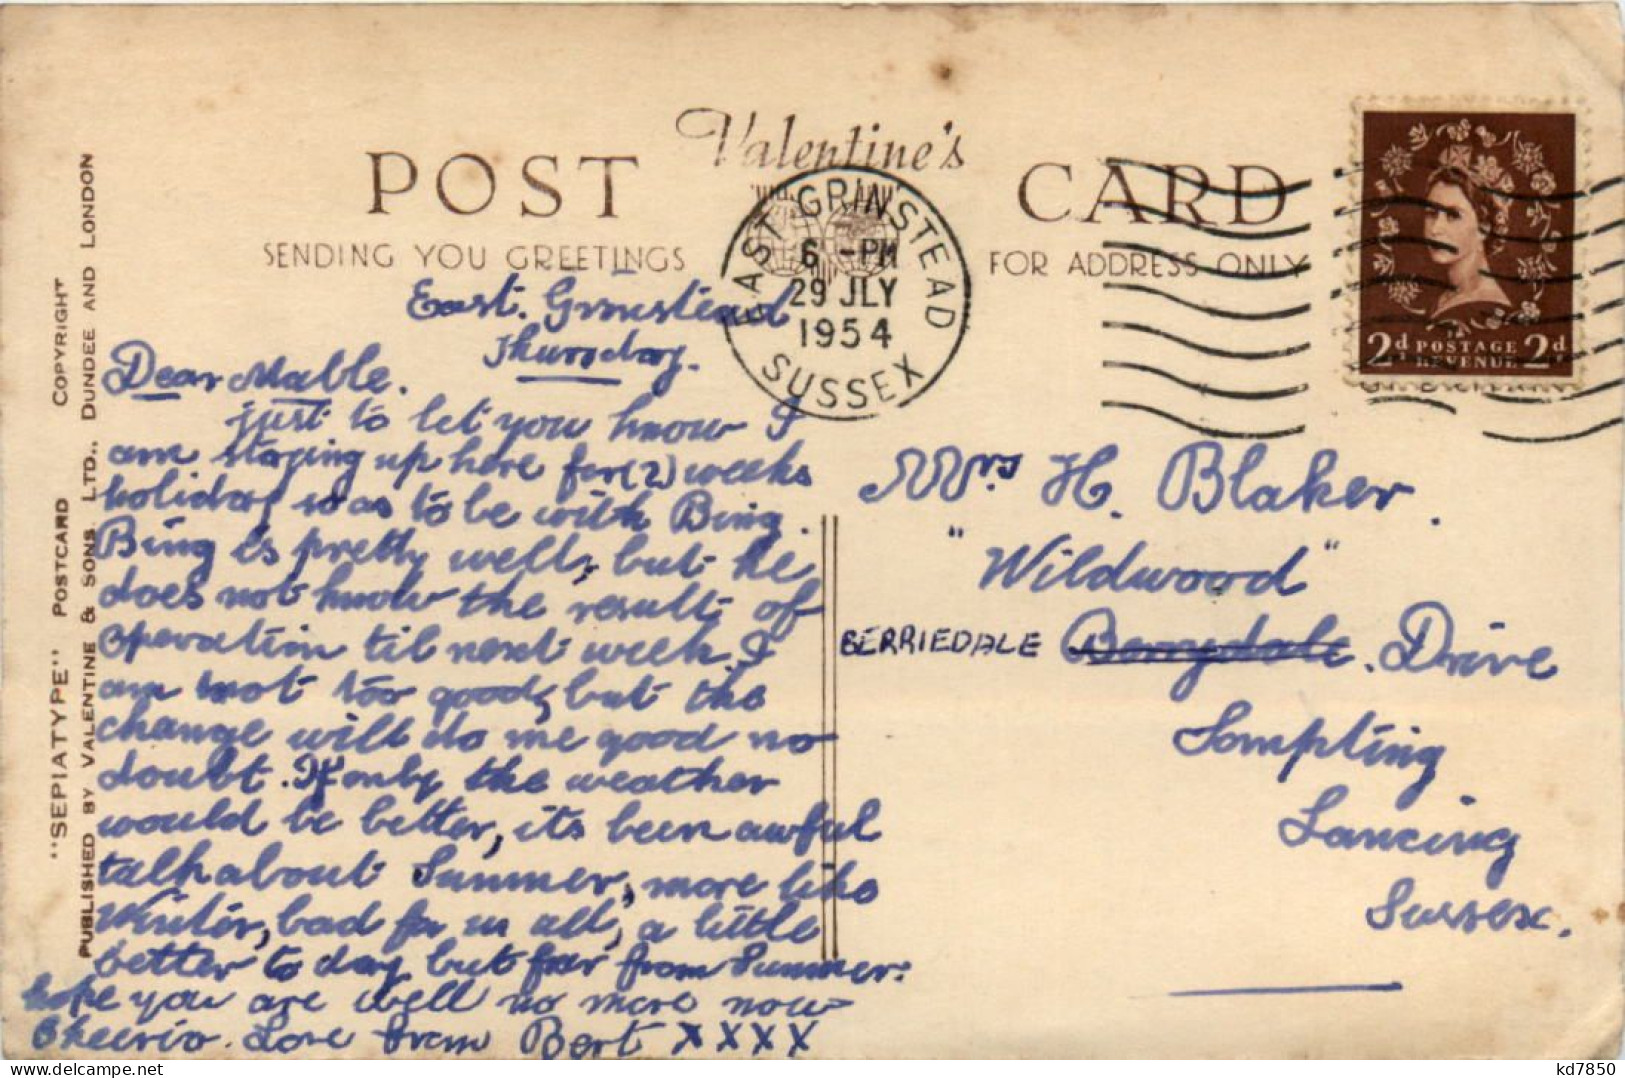 Valentine's
POST CARD
SENDING YOU GREETINGS
FOR ADDRESS ONLY
EAST GRINSTEAD
6 - PM
29 JLY
1954
SUSSEX
2d POSTAGE REVENUE 2d
COPYRIGHT
"SEPIATYPE" POSTCARD
PUBLISHED BY VALENTINE & SONS. LTD., DUNDEE AND LONDON
East. Grinstead
Thursday.
Dear Mable.
just to let you know I
am staying up here for (2) weeks
holiday so as to be with Bing.
Bing is pretty well, but he
does not know the result of
operation til next week. I
am not too good, but the
change will do me good no
doubt. If only the weather
would be better, its been awful
talk about Summer, more like
Winter, bad for us all, a little
better to day but far from Summer.
hope you are well no more now
Cheerio. Love from Bert X X X X
Mrs H. Blaker.
"Wildwood"
BERRIEDALE Berrydale. Drive
Sompting
Lancing
Sussex.
kd7850